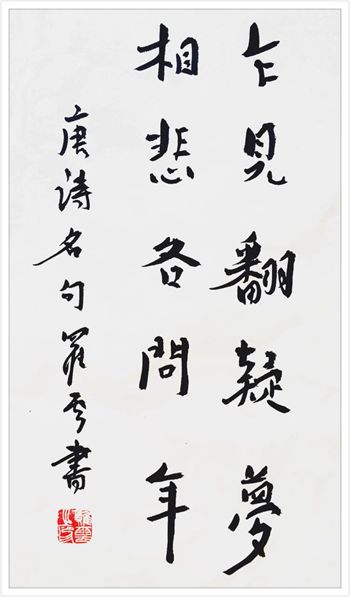 乍見翻疑夢
相悲各問年
唐詩名句羅雲書